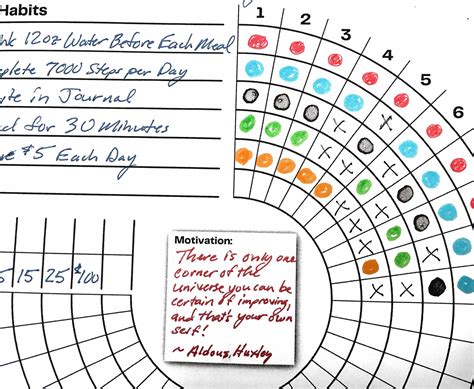 Habits
1 2 3 4 5 6
nk 12oz Water Before Each Meal
plete 7000 Steps per Day
te in Journal
d for 30 Minutes
ve $5 Each Day
5 15 25 $100
Motivation:
There is only one
corner of the
universe you can be
certain of improving,
and that's your own
self!
~ Aldous Huxley